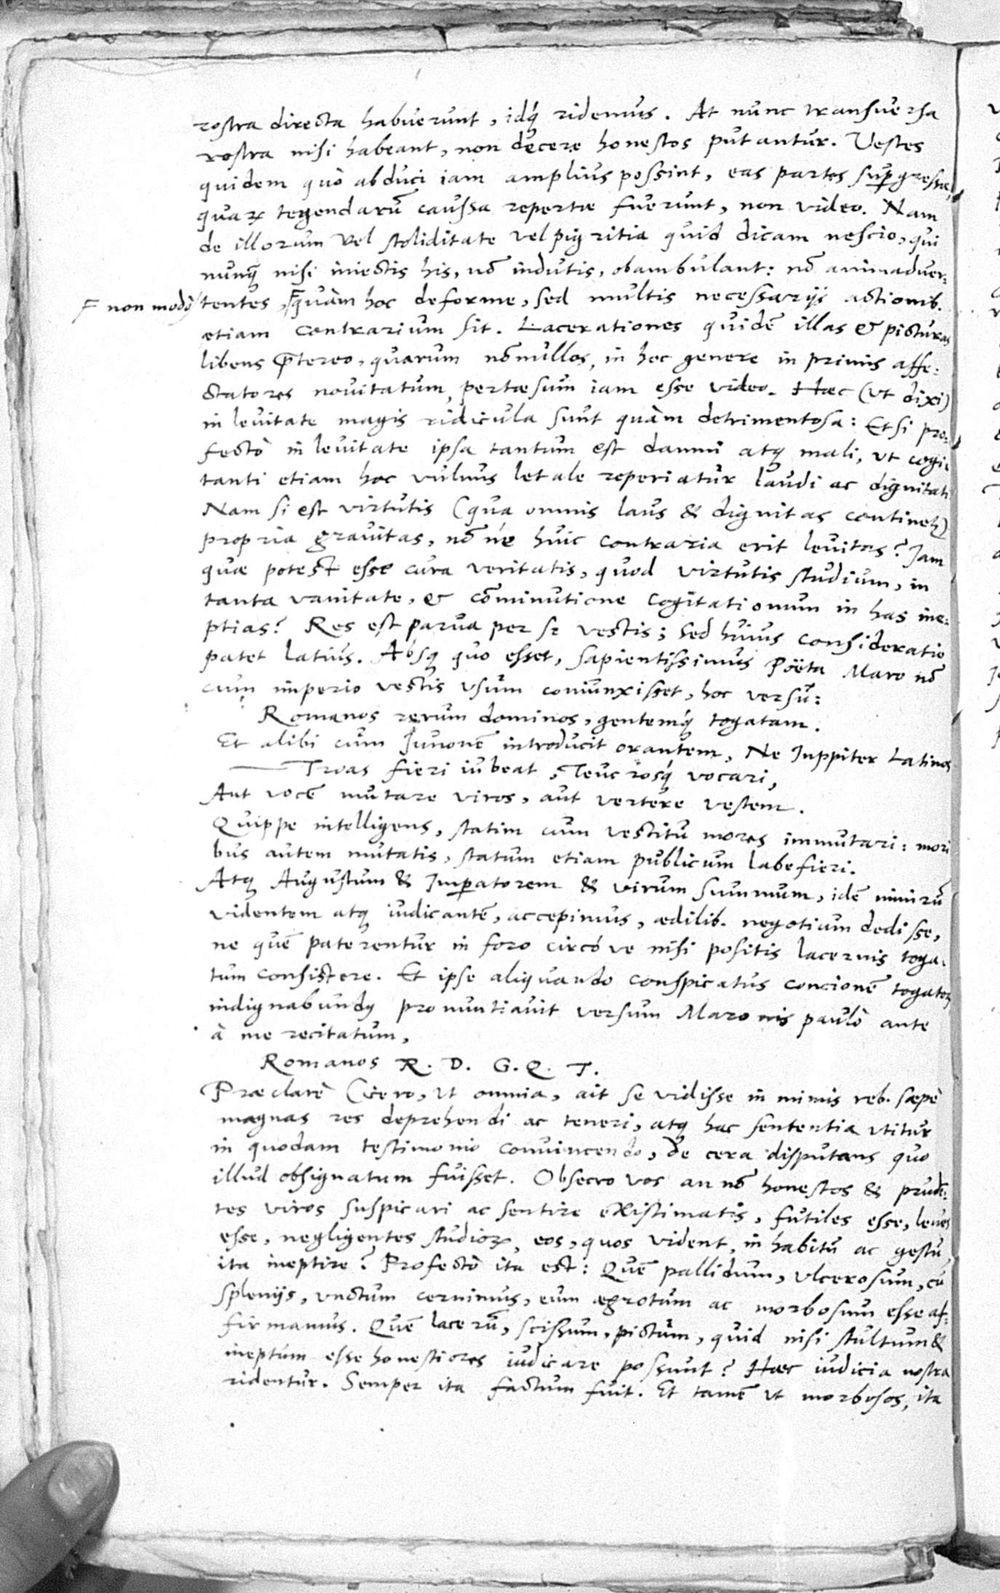 rostra directa habuerunt, idq́ ridemus. At nunc transuersa
rostra nisi habeant, non decere honestos putantur. Vestes
quidem quò abduci iam amplius possint, eas partes supgressæ,
quaꝝ tegendarū caussa repertæ fuerunt, non video. Nam
de illorum vel stoliditate vel pigritia quid dicam nescio, qui
nunq̃ nisi iniectis his, nō indutis, obambulant: nō animaduer-
tentes, quàm hoc deforme, sed multis necessarijs actionib.
non modo
etiam contrarium sit. Lacerationes quidē illas & picturas
libens p̄tereo, quarum nōnullos, in hoc genere in primis affe-
ctatores nouitatum, pertæsum iam esse video. Hæc (vt dixi)
in leuitate magis ridicula sunt quàm detrimentosa: Etsi pro-
fectò in leuitate ipsa tantum est damni atq́ mali, vt cogi-
tanti etiam hoc vulnus letale reperiatur laudi ac dignitati.
Nam si est virtutis (qua omnis laus & dignitas continet᷑)
propria grauitas, nō ne huic contraria erit leuitas? Jam
quæ potest esse cura veritatis, quod virtutis studium, in
tanta vanitate, & cōminutione cogitationum in has ine-
ptias? Res est parua per se vestis; sed huius consideratio
patet latius. Absq́ quo esset, sapientissimus Poëta Maro nō
cum imperio vestis vsum coniunxisset, hoc versu:
Romanos rerum dominos, gentemq́ togatam.
Et alibi cum Junonē introducit orantem, Ne Juppiter Latinos
Troas fieri iubeat, Teucrosq́ vocari,
Aut vocē mutare viros, aut vertere vestem.
Quippe intelligens, statim cum vestitu mores immutari: mori
bus autem mutatis, statum etiam publicum labefieri.
Atq́ Augustum & Imperatorem & virum summum, idē nimirū
videntem atq́ iudicantē, accepimus, ædilib. negotium dedisse,
ne quē paterentur in foro circóve nisi positis lacernis toga-
tum consistere. Et ipse aliquando conspicatus concionē togatoꝝ
indignabundq pronuntiauit versum Maronis paulò ante
à me recitatum,
Romanos R. D. G. Q. T.
Præclarè Cicero, vt omnia, ait se vidisse in minimis reb. sæpè
magnas res deprehendi ac teneri, atq́ hac sententia vtitur
in quodam testimonio conuincendo, de cera disputans quo
illud obsignatum fuisset. Obsecro vos an nō honestos & prudē-
tes viros suspicari ac sentire existimatis, futiles esse, leues
esse, negligentes studioꝝ, eos, quos vident, in habitu ac gestu
ita ineptire? Profectò ita est: Quē pallidum, vlcerosum, cū
splenijs, vnctum cernimus, eum ægrotum ac morbosum esse af-
firmamus. Quē lacerū, scissum, pictum, quid nisi stultum &
ineptum esse honestiores iudicare possunt? Hæc iudicia nostra
ridentur. Semper ita factum fuit. Et tamē vt morbosos, ita